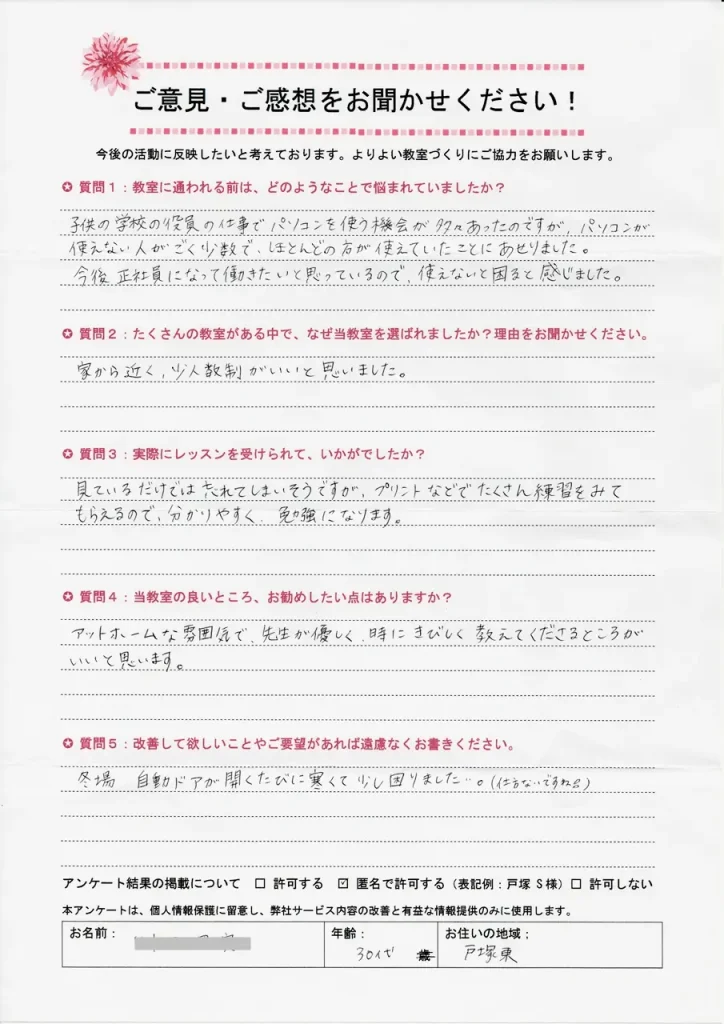 ご意見・ご感想をお聞かせください！
今後の活動に反映したいと考えております。よりよい教室づくりにご協力をお願いします。
✪ 質問１：教室に通われる前は、どのようなことで悩まれていましたか？
子供の学校の役員の仕事でパソコンを使う機会が多々あったのですが、パソコンが
使えない人がごく少数で、ほとんどの方が使えていたことにあせりました。
今後正社員になって働きたいと思っているので、使えないと困ると感じました。
✪ 質問２：たくさんの教室がある中で、なぜ当教室を選ばれましたか？理由をお聞かせください。
家から近く、少人数制がいいと思いました。
✪ 質問３：実際にレッスンを受けられて、いかがでしたか？
見ているだけでは忘れてしまいそうですが、プリントなどでたくさん練習をみて
もらえるので、分かりやすく、勉強になります。
✪ 質問４：当教室の良いところ、お勧めしたい点はありますか？
アットホームな雰囲気で、先生が優しく、時にきびしく教えてくださるところが
いいと思います。
✪ 質問５：改善して欲しいことやご要望があれば遠慮なくお書きください。
冬場 自動ドアが開くたびに寒くて少し困りました…。(仕方ないですね)
アンケート結果の掲載について □ 許可する ☑ 匿名で許可する（表記例：戸塚 S 様）□ 許可しない
本アンケートは、個人情報保護に留意し、弊社サービス内容の改善と有益な情報提供のみに使用します。
お名前： 年齢： お住いの地域：
30代 歳 戸塚東